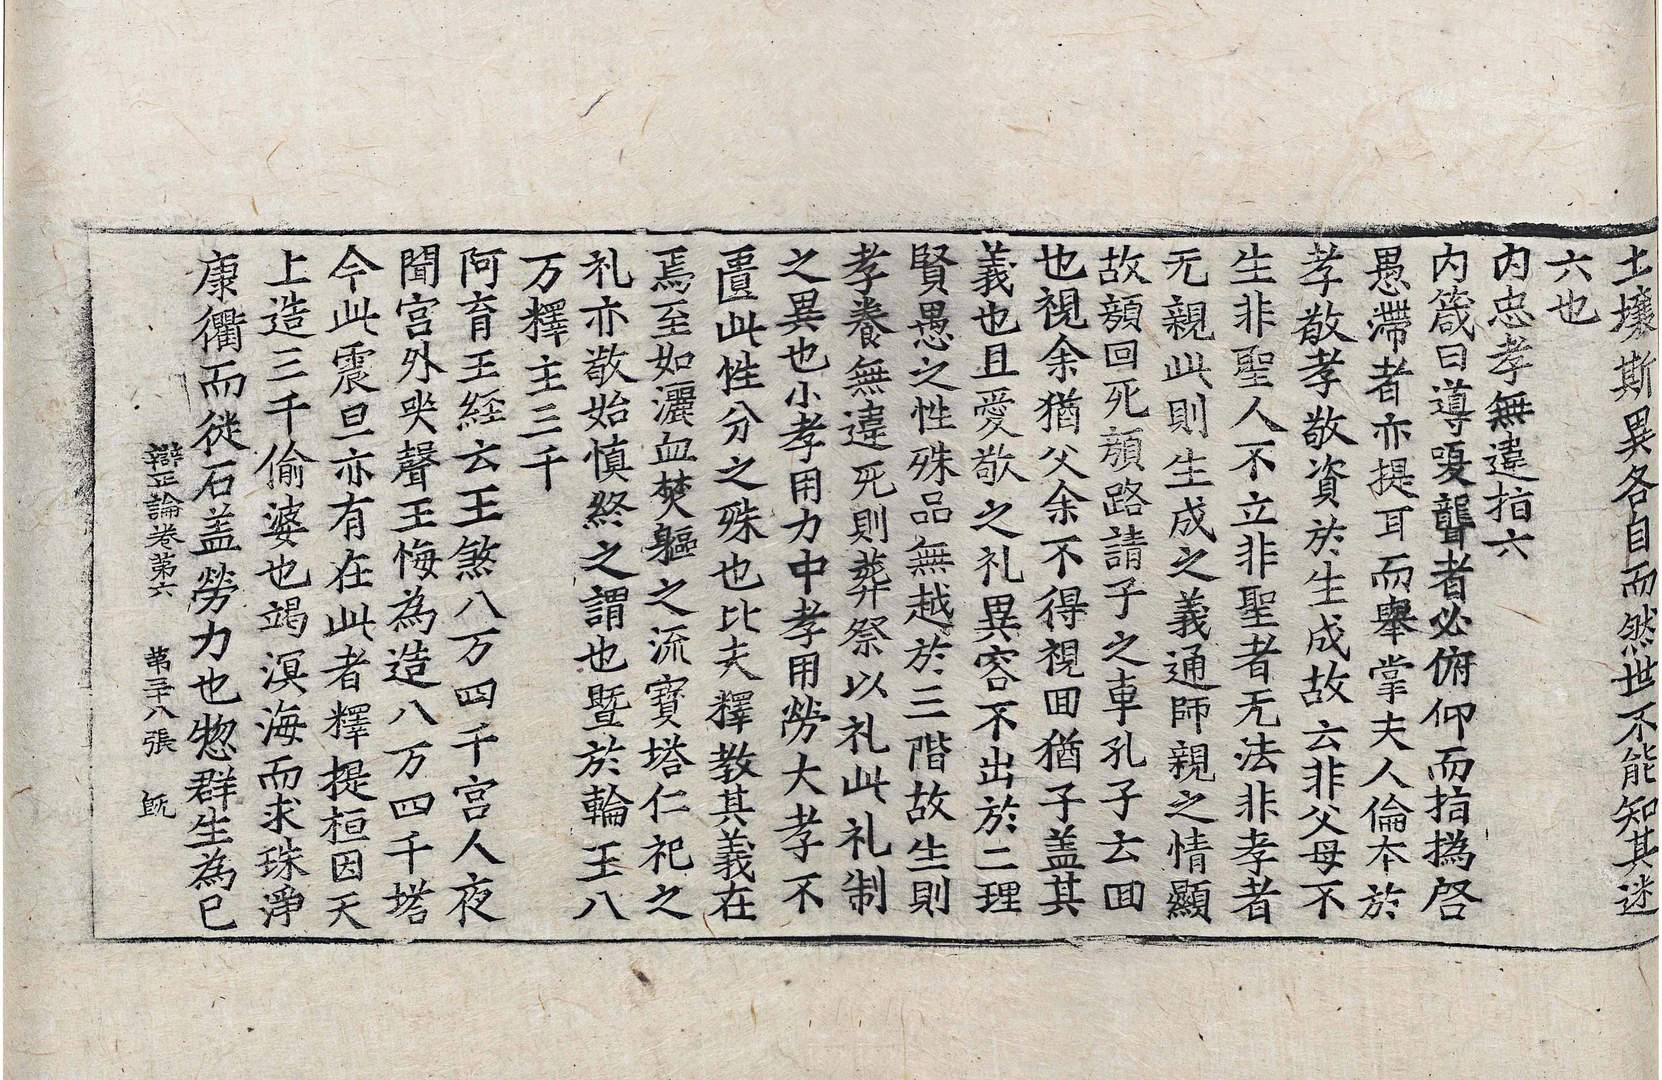 土壤斯異各自而然世不能知其迷
六也
内忠孝無違指六
内箴曰導嗄聾者必俯仰而指撝啓
愚滯者亦提耳而舉掌夫人倫夲於
孝敬孝敬資於生成故云非父母不
生非聖人不立非聖者无法非孝者
无親此則生成之義通師親之情顯
故顔回死顔路請子之車孔子云回
也視余猶父余不得視回猶子盖其
義也且愛敬之礼異容不出於二理
賢愚之性殊品無越於三階故生則
孝養無違死則葬祭以礼此礼制
之異也小孝用力中孝用勞大孝不
匱此性分之殊也比夫釋教其義在
焉至如灑血焚軀之流寳塔仁祀之
礼亦敬始慎終之謂也暨於輪王八
万釋主三千
阿育王経云王煞八万四千宮人夜
聞宮外哭聲王悔為造八万四千塔
今此震旦亦有在此者釋提桓因天
上造三千偷婆也竭溟海而求珠淨
康衢而徙石盖勞力也惣群生為已
辯正論卷第六　第三十八張　旣